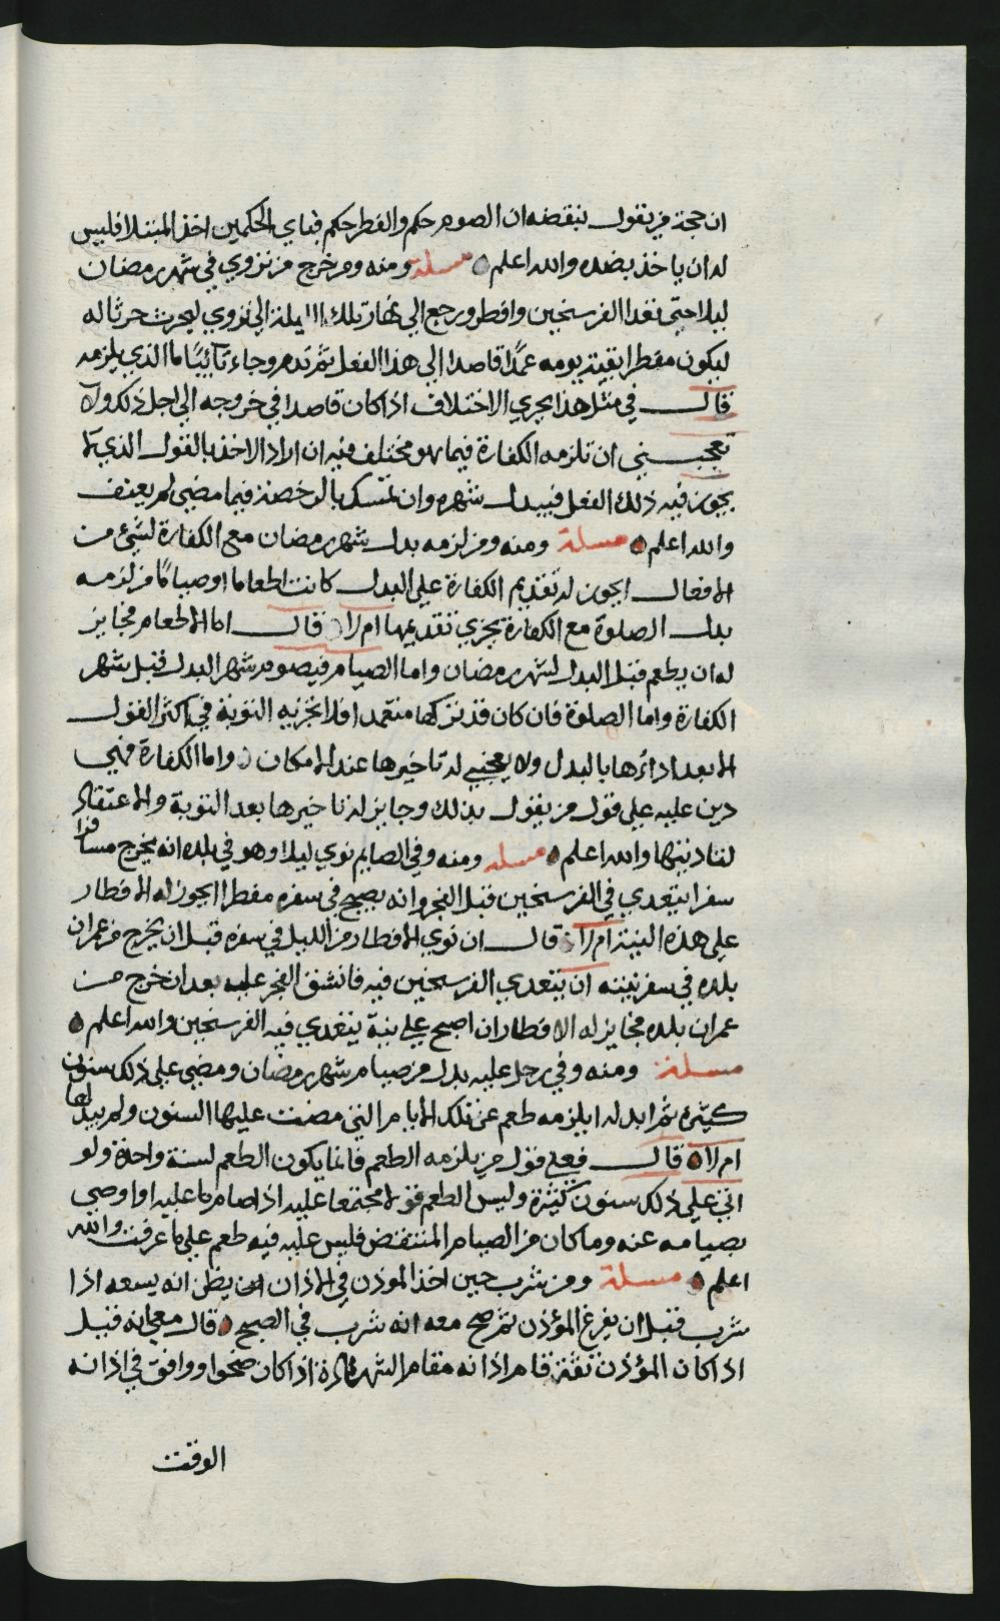 ان حجة من يقول بنقضه ان الصوم حكم والفطر حكم فباي الحكمين اخذ المبتلا فليس
له ان ياخذ بضده والله اعلم مسلة ومنه ومن خرج من نزوي في شهر رمضان
ليلا حتى تعدا الفرسخين وافطر ورجع الي نهار تلك الليلة الي نزوي ليحرث حرثا له
ليكون مفطرا بقية يومه عمدًا قاصدا الي هذا الفعل ثم ندم وجاء تآئبًا ما الذي يلزمه
قال في مثل هذا يجري الاختلاف اذا كان قاصدا في خروجه الي اجل ذلك ولا
تعجبني ان تلزمه الكفارة فيما هو مختلف فيه ان اراد الاخذ بالقول الذي لا
يجوز فيه ذلك الفعل فيبدل شهره وان تمسك بالرخصة فيما مضي لم يعنف
والله اعلم مسلة ومنه ومن لزمه بدل شهر رمضان مع الكفارة لشئ من
الافعال ايجوز له تقديم الكفارة علي البدل كانت اطعاما او صيامًا ومن لزمه
بدل الصلوة مع الكفارة يجزي تقديمها ام لا قال اما الاطعام فجايز
له ان يطعم قبل البدل لشهر رمضان واما الصيام فيصوم شهر البدل قبل شهر
الكفارة واما الصلوة فان كان قد تركها متعمدا فلا تجزيه التوبة في اكثر القول
الا بعد ادائها بالبدل ولا يعجبني له تاخيرها عند الامكان واما الكفارة فهي
دين عليه علي قول من يقول بذلك وجايز له تاخيرها بعد التوبة والاعتقاد
لتاديتها والله اعلم مسلة ومنه وفي الصايم نوي ليلا وهو في بلده انه يخرج مسافرا
سفرا يتعدي في الفرسخين قبل الفجر وانه يصبح في سفره مفطرا ايجوز له الافطار
علي هذه النية ام لا قال ان نوي الافطار من الليل في سفره قبل ان يخرج من عمران
بلده في سفر نيته ان يتعدي الفرسخين فيه فانشق الفجر عليه بعد ان خرج من
عمران بلده فجايز له الافطار ان اصبح علي نية يتعدي فيه الفرسخين والله اعلم
مسلة ومنه وفي رجل عليه بدل من صيام شهر رمضان ومضي علي ذلك سنون
كثيرة ثم ابدلها ايلزمه طعم عن تلك الايام التي مضت عليها السنون ولم يبدلها
ام لا قال فعلي قول من يلزمه الطعم فانما يكون الطعم لسنة واحدة ولو
اتي علي ذلك سنون كثيرة وليس الطعم قولا مجتمعا عليه اذا صام ما عليه او اوصي
بصيامه عنه وما كان من الصيام المنتقض فليس عليه فيه طعم علي ما عرفت والله
اعلم مسلة ومن شرب حين اخذ الموذن في الاذان يظن انه يسعه اذا
شرب قبل ان يفرغ المؤذن ثم صح معه انه شرب في الصبح قال معي انه قيل
اذا كان المؤذن ثقة قام اذانه مقام الشهادة اذا كان صحوا ووافق في اذانه
الوقت